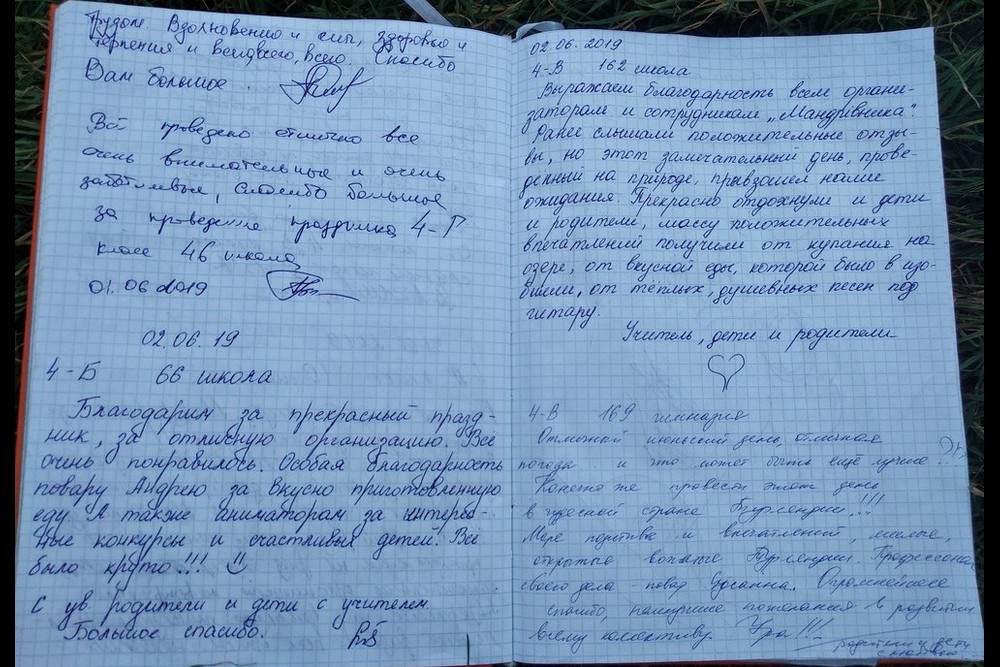 Трудом. Вдохновению и силы, здоровью и
терпения и везде, всего, всего. Спасибо
Вам большое.
Всё проведено отлично все
очень внимательные и очень
заботливые, спасибо большое
за проведение праздника 4-Г
класс 46 школа
01.06 2019
02.06.19
4-Б 66 школа
Благодарим за прекрасный празд-
ник, за отличную организацию. Всё
очень понравилось. Особая благодарность
повару Андрею за вкусно приготовленную
еду. А также аниматорам за интерес-
ные конкурсы и счастливых детей! Всё
было круто!!!
С ув родители и дети с учителем.
Большое спасибо.
02.06.2019
4-В 162 школа
Выражаем благодарность всем органи-
заторам и сотрудникам „Мандрівника".
Ранее слышали положительные отзы-
вы, но этот замечательный день, прове-
денный на природе, превзошел наши
ожидания. Прекрасно отдохнули и дети
и родители, массу положительных
впечатлений получили от купания на
озере, от вкусной еды, которой было в изо-
билии, от тёплых, душевных песен под
гитару.
Учитель, дети и родители
4-В 169 гимназия
Отличный июньский день, отличная
погода и что может быть ещё лучше
Конечно же провести этот день
в чудесной стране !!!
Море позитива и впечатлений, милые,
открытые вожатые
своего дела - повар Огромнейшее
спасибо, наилучшие пожелания в развитии
всему коллективу. Ура!!!
родители и дети